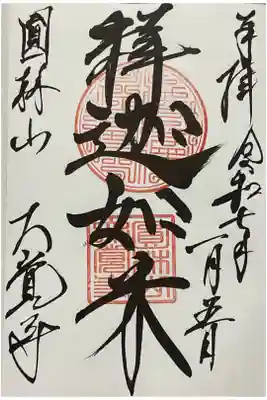 奉拝 令和七年一月五日
釋迦如来
圓林山 大覚寺